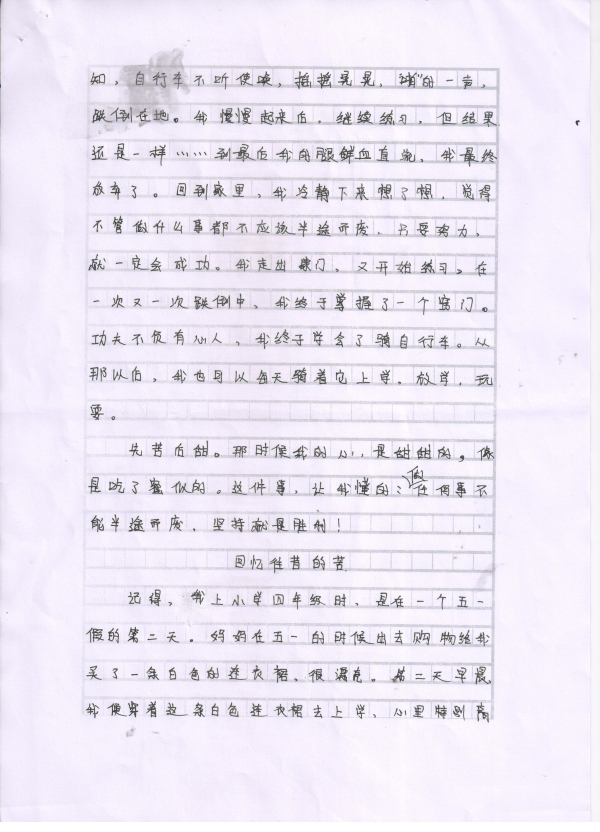 知，自行车不听使唤，摇摇晃晃，"啪"的一声，
跌倒在地。我慢慢起来后，继续练习，但结果
还是一样……到最后我的腿鲜血直流，我最终
放弃了。回到家里，我冷静下来想了想，觉得
不管做什么事都不应该半途而废，只要努力，
就一定会成功。我走出家门，又开始练习。在
一次又一次跌倒中，我终于掌握了一个窍门。
功夫不负有心人，我终于学会了骑自行车。从
那以后，我也可以每天骑着它上学，放学，玩
耍。
先苦后甜。那时候我的心，是甜甜的。像
是吃了蜜似的。这件事，让我懂的：做任何事不
能半途而废，坚持就是胜利！
回忆往昔的苦
记得，我上小学四年级时，是在一个五一
假的第二天。妈妈在五一的时候出去购物给我
买了一条白色的连衣裙，很漂亮。第二天早晨
我便穿着这条白色连衣裙去上学，心里特别高